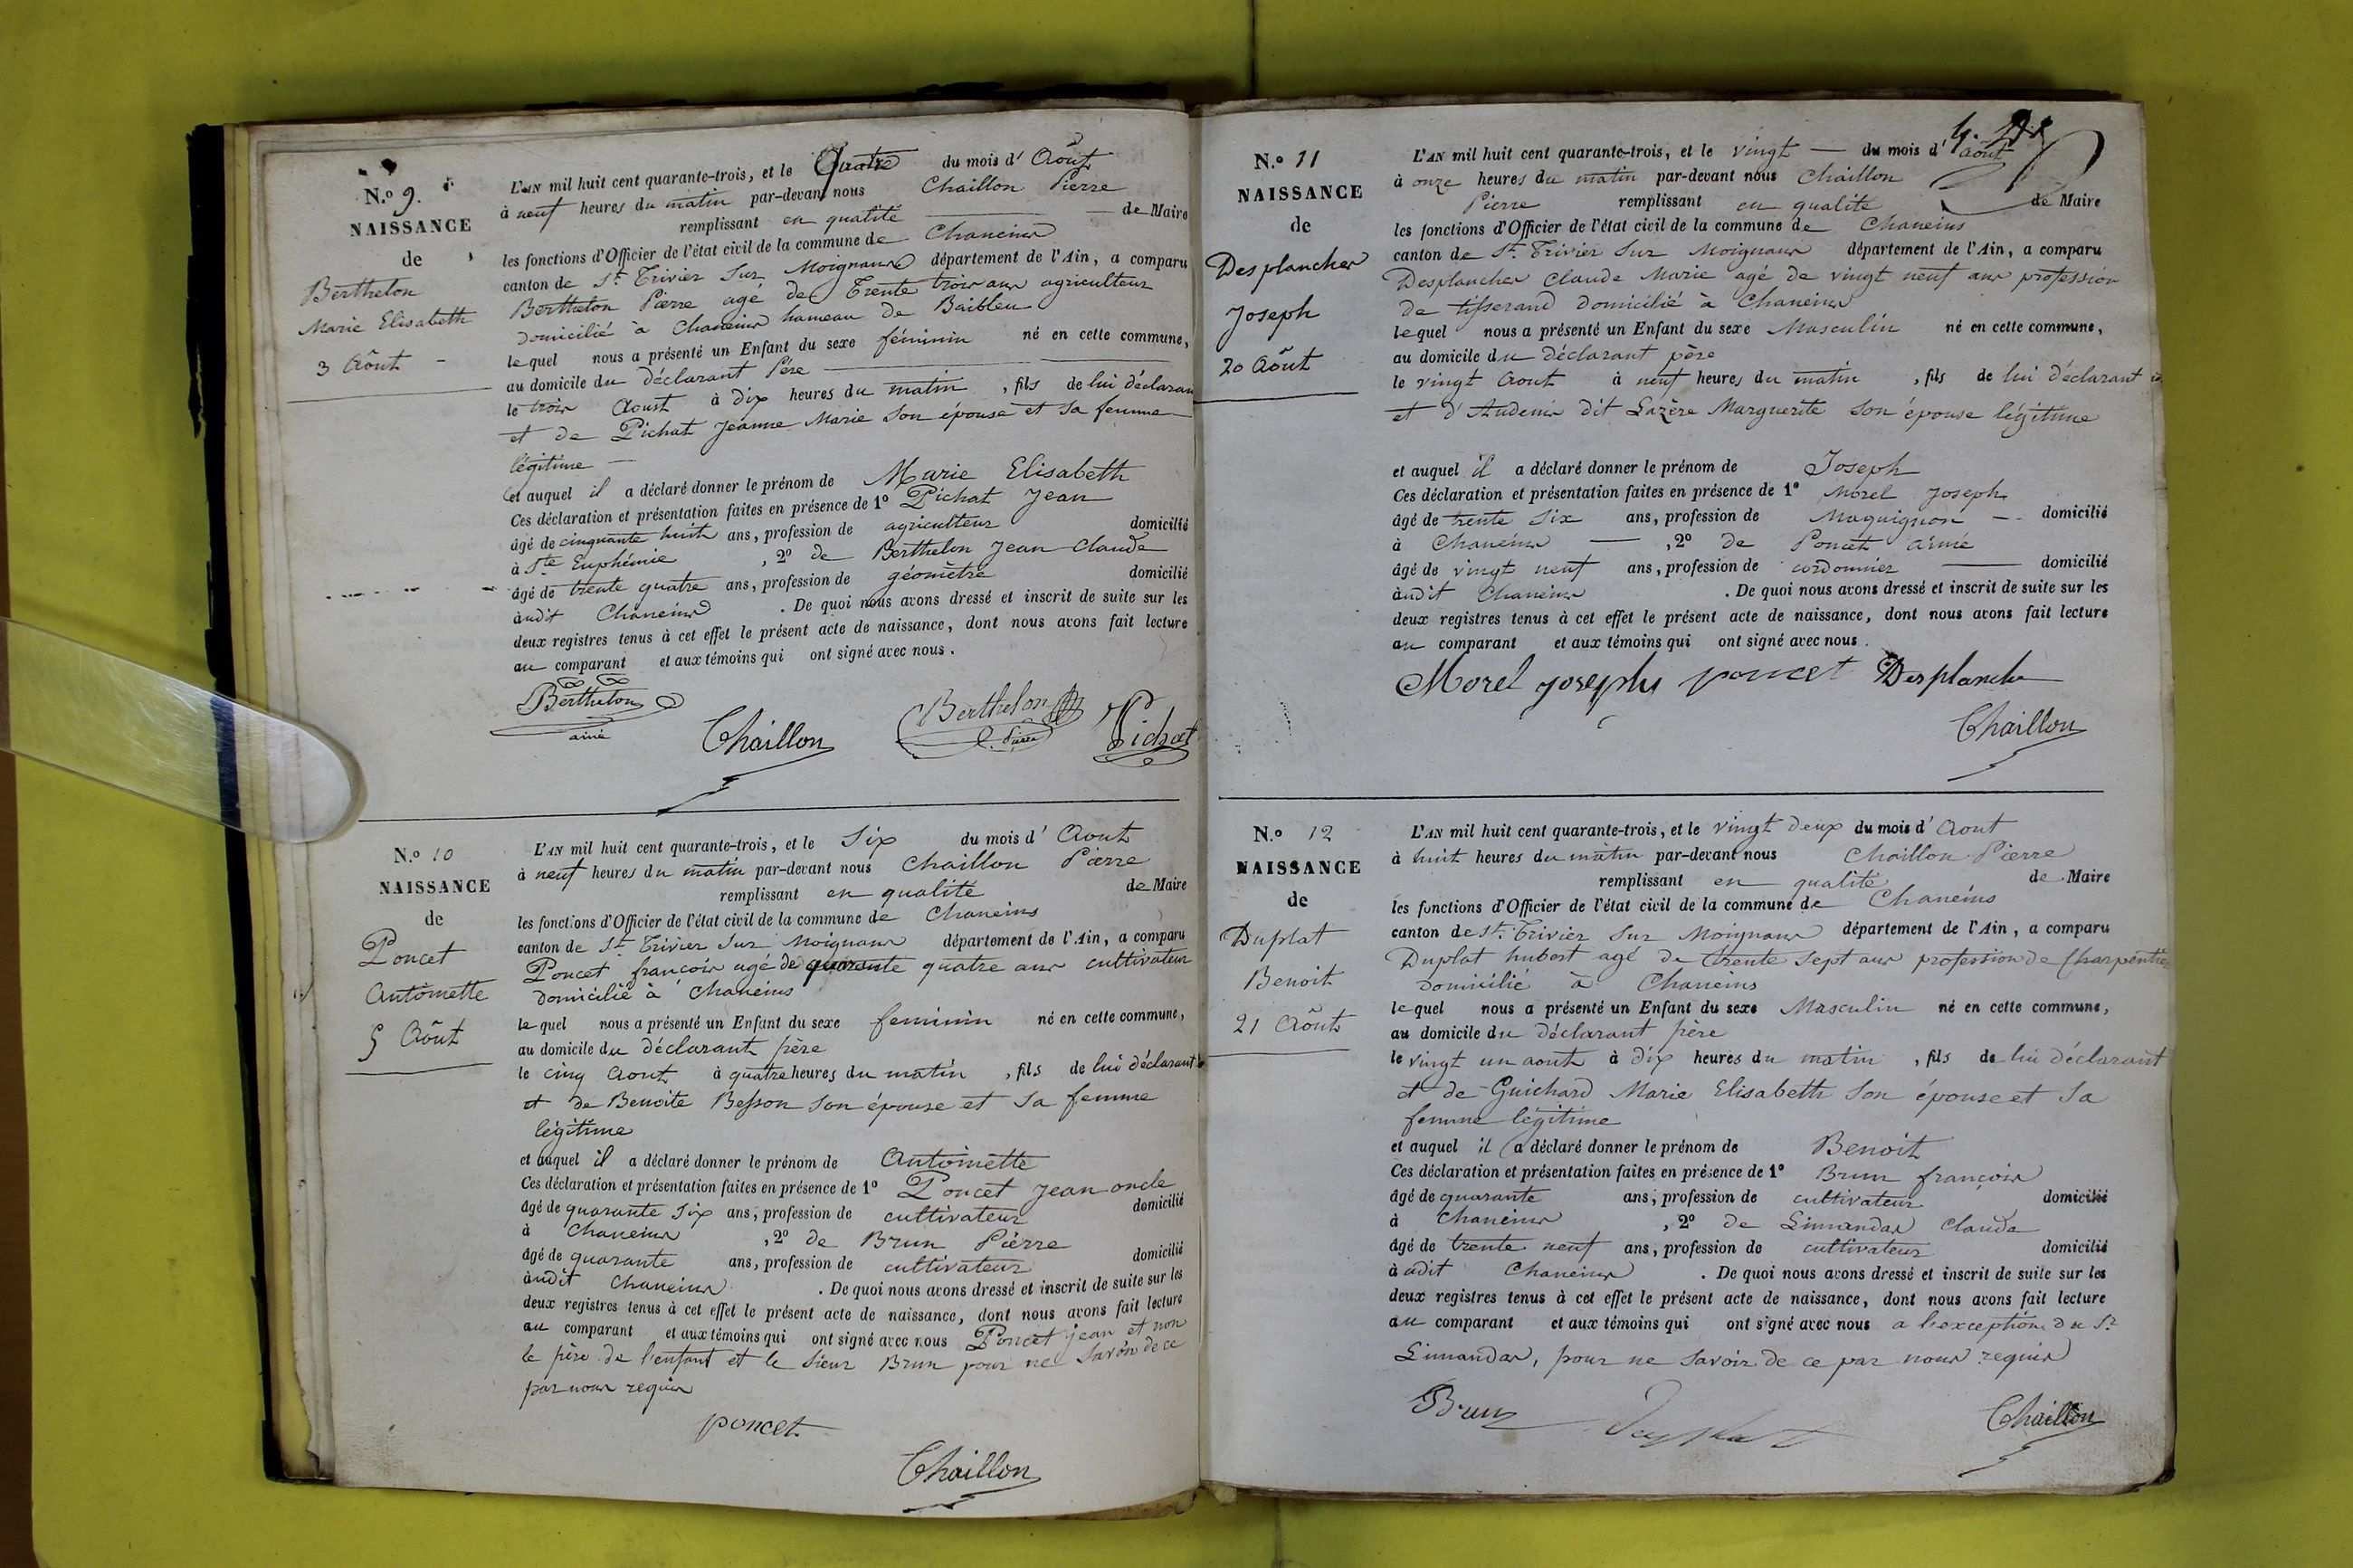 N.º 9.
NAISSANCE
de
Berthelon
Marie Elisabeth
3 Août
L'AN mil huit cent quarante-trois, et le Quatre du mois d' Août
à neuf heures du matin par-devant nous Chaillon Pierre
remplissant en qualité de Maire
les fonctions d'Officier de l'état civil de la commune de Chaneins
canton de St. Trivier Sur Moignans département de l'Ain, a comparu
Berthelon Pierre agé de Trente trois ans agriculteur
domicilié à Chaneins hameau de Baibleu
lequel nous a présenté un Enfant du sexe féminin né en cette commune,
au domicile du déclarant Père
le trois Aoust à dix heures du matin, fils de lui déclarant
et de Pichat Jeanne Marie son épouse et sa femme
légitime
et auquel il a déclaré donner le prénom de Marie Elisabeth
Ces déclaration et présentation faites en présence de 1º Pichat Jean
âgé de cinquante huit ans, profession de agriculteur domicilié
à Ste Euphémie, 2º de Berthelon Jean Claude
âgé de trente quatre ans, profession de géomètre domicilié
àudit Chaneins. De quoi nous avons dressé et inscrit de suite sur les
deux registres tenus à cet effet le présent acte de naissance, dont nous avons fait lecture
au comparant et aux témoins qui ont signé avec nous.
Berthelon
ainé
Chaillon
Berthelon
Pierre
Pichat
N.º 10
NAISSANCE
de
Poncet
Antoinette
5 Août
L'AN mil huit cent quarante-trois, et le Six du mois d' Aout
à neuf heures du matin par-devant nous Chaillon Pierre
remplissant en qualité de Maire
les fonctions d'Officier de l'état civil de la commune de Chaneins
canton de St. Trivier Sur Moignans département de l'Ain, a comparu
Poncet françois agé de quarante quatre ans cultivateur
domicilié à Chaneins
lequel nous a présenté un Enfant du sexe feminin né en cette commune,
au domicile du déclarant père
le cinq Aout à quatre heures du matin, fils de lui déclarant
et de Benoite Besson son épouse et sa femme
légitime
et auquel il a déclaré donner le prénom de Antoinette
Ces déclaration et présentation faites en présence de 1º Poncet Jean oncle
âgé de quarante Six ans, profession de cultivateur domicilié
à Chaneins, 2º de Brun Pierre
âgé de quarante ans, profession de cultivateur domicilié
àudit Chaneins. De quoi nous avons dressé et inscrit de suite sur les
deux registres tenus à cet effet le présent acte de naissance, dont nous avons fait lecture
au comparant et aux témoins qui ont signé avec nous Poncet jean et non
le père de l'enfant et le Sieur Brun pour ne savoir de ce
par nous requis
poncet
Chaillon
N.º 11
NAISSANCE
de
Desplanches
Joseph
20 Août
L'AN mil huit cent quarante-trois, et le vingt du mois d' aout
à onze heures du matin par-devant nous Chaillon
Pierre remplissant en qualité de Maire
les fonctions d'Officier de l'état civil de la commune de Chaneins
canton de St. Trivier Sur Moignans département de l'Ain, a comparu
Desplanches Claude Marie agé de vingt neuf ans profession
de tisserand domicilié à Chaneins
lequel nous a présenté un Enfant du sexe Masculin né en cette commune,
au domicile du déclarant père
le vingt Aout à neuf heures du matin, fils de lui déclarant
et d'Audenis dit Lazère Marguerite son épouse légitime
et auquel il a déclaré donner le prénom de Joseph
Ces déclaration et présentation faites en présence de 1º Morel Joseph
âgé de trente Six ans, profession de Maquignon domicilié
à Chaneins, 2º de Poncet Aimé
âgé de vingt neuf ans, profession de cordonnier domicilié
àudit Chaneins. De quoi nous avons dressé et inscrit de suite sur les
deux registres tenus à cet effet le présent acte de naissance, dont nous avons fait lecture
au comparant et aux témoins qui ont signé avec nous.
Morel josephs poncet Desplanche
Chaillon
N.º 12
NAISSANCE
de
Duplat
Benoit
21 Août
L'AN mil huit cent quarante-trois, et le vingt deux du mois d' Aout
à huit heures du matin par-devant nous Chaillon Pierre
remplissant en qualité de Maire
les fonctions d'Officier de l'état civil de la commune de Chaneins
canton de St. Trivier Sur Moignans département de l'Ain, a comparu
Duplat hubert agé de trente Sept ans profession de Charpentier
domicilié à Chaneins
lequel nous a présenté un Enfant du sexe Masculin né en cette commune,
au domicile du déclarant père
le vingt un aout à dix heures du matin, fils de lui déclarant
et de Guichard Marie Elisabeth son épouse et sa
femme légitime
et auquel il a déclaré donner le prénom de Benoit
Ces déclaration et présentation faites en présence de 1º Brun françois
âgé de quarante ans, profession de cultivateur domicilié
à Chaneins, 2º de Limandas Claude
âgé de trente neuf ans, profession de cultivateur domicilié
à udit Chaneins. De quoi nous avons dressé et inscrit de suite sur les
deux registres tenus à cet effet le présent acte de naissance, dont nous avons fait lecture
au comparant et aux témoins qui ont signé avec nous a l'exception du Sr
Limandas, pour ne savoir de ce par nous requis
Brun Duplat Chaillon